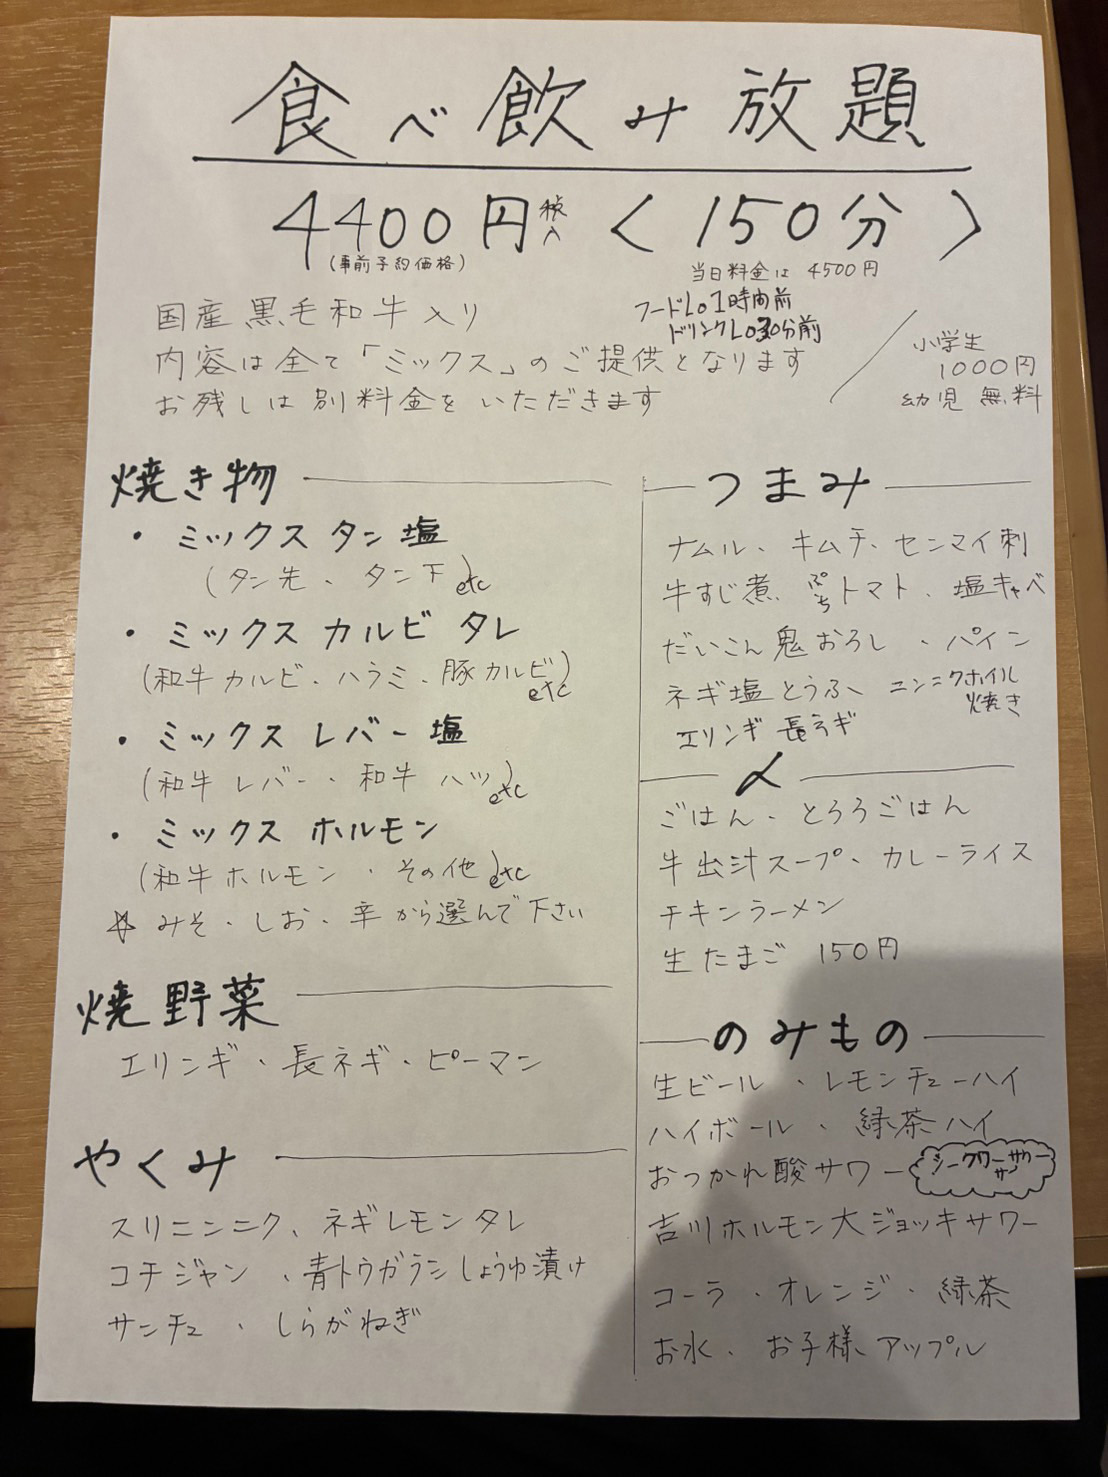 食べ飲み放題
4400円税入〈150分〉
(事前予約価格)
当日料金は 4500円
フードLo1時間前
ドリンクLo30分前
国産黒毛和牛入り
内容は全て「ミックス」のご提供となります
お残しは別料金をいただきます
小学生
1000円
幼児 無料
焼き物
・ミックスタン塩
(タン先、タン下etc)
・ミックスカルビ タレ
(和牛カルビ、ハラミ、豚カルビetc)
・ミックスレバー塩
(和牛レバー、和牛ハツetc)
・ミックスホルモン
(和牛ホルモン・その他etc)
☆みそ・しお・辛から選んで下さい
焼野菜
エリンギ・長ネギ・ピーマン
やくみ
スリニンニク、ネギレモンタレ
コチジャン、青トウガラシしょうゆ漬け
サンチュ・しらがねぎ
つまみ
ナムル、キムチ、センマイ刺
牛すじ煮、ぷちトマト、塩キャベ
だいこん鬼おろし、パイン
ネギ塩とうふ、ニンニクホイル焼き
エリンギ 長ネギ
〆
ごはん・とろろごはん
牛出汁スープ、カレーライス
チキンラーメン
生たまご 150円
のみもの
生ビール・レモンチューハイ
ハイボール、緑茶ハイ
おつかれ酸サワー
シークワーサーサワー
吉川ホルモン大ジョッキサワー
コーラ・オレンジ・緑茶
お水、お子様アップル